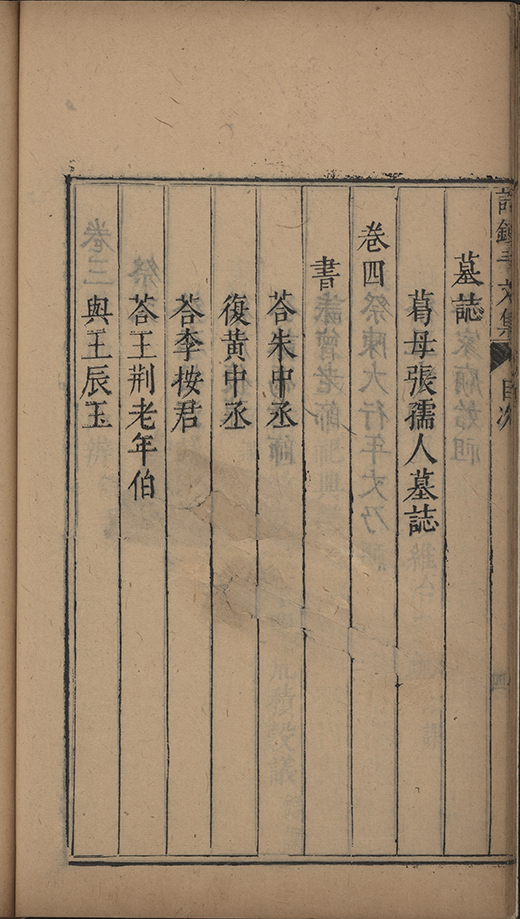 文集 目次
墓誌
葛母張孺人墓誌
卷四
書
荅朱中丞
復黃中丞
荅李按君
荅王荆老年伯
與王辰玉